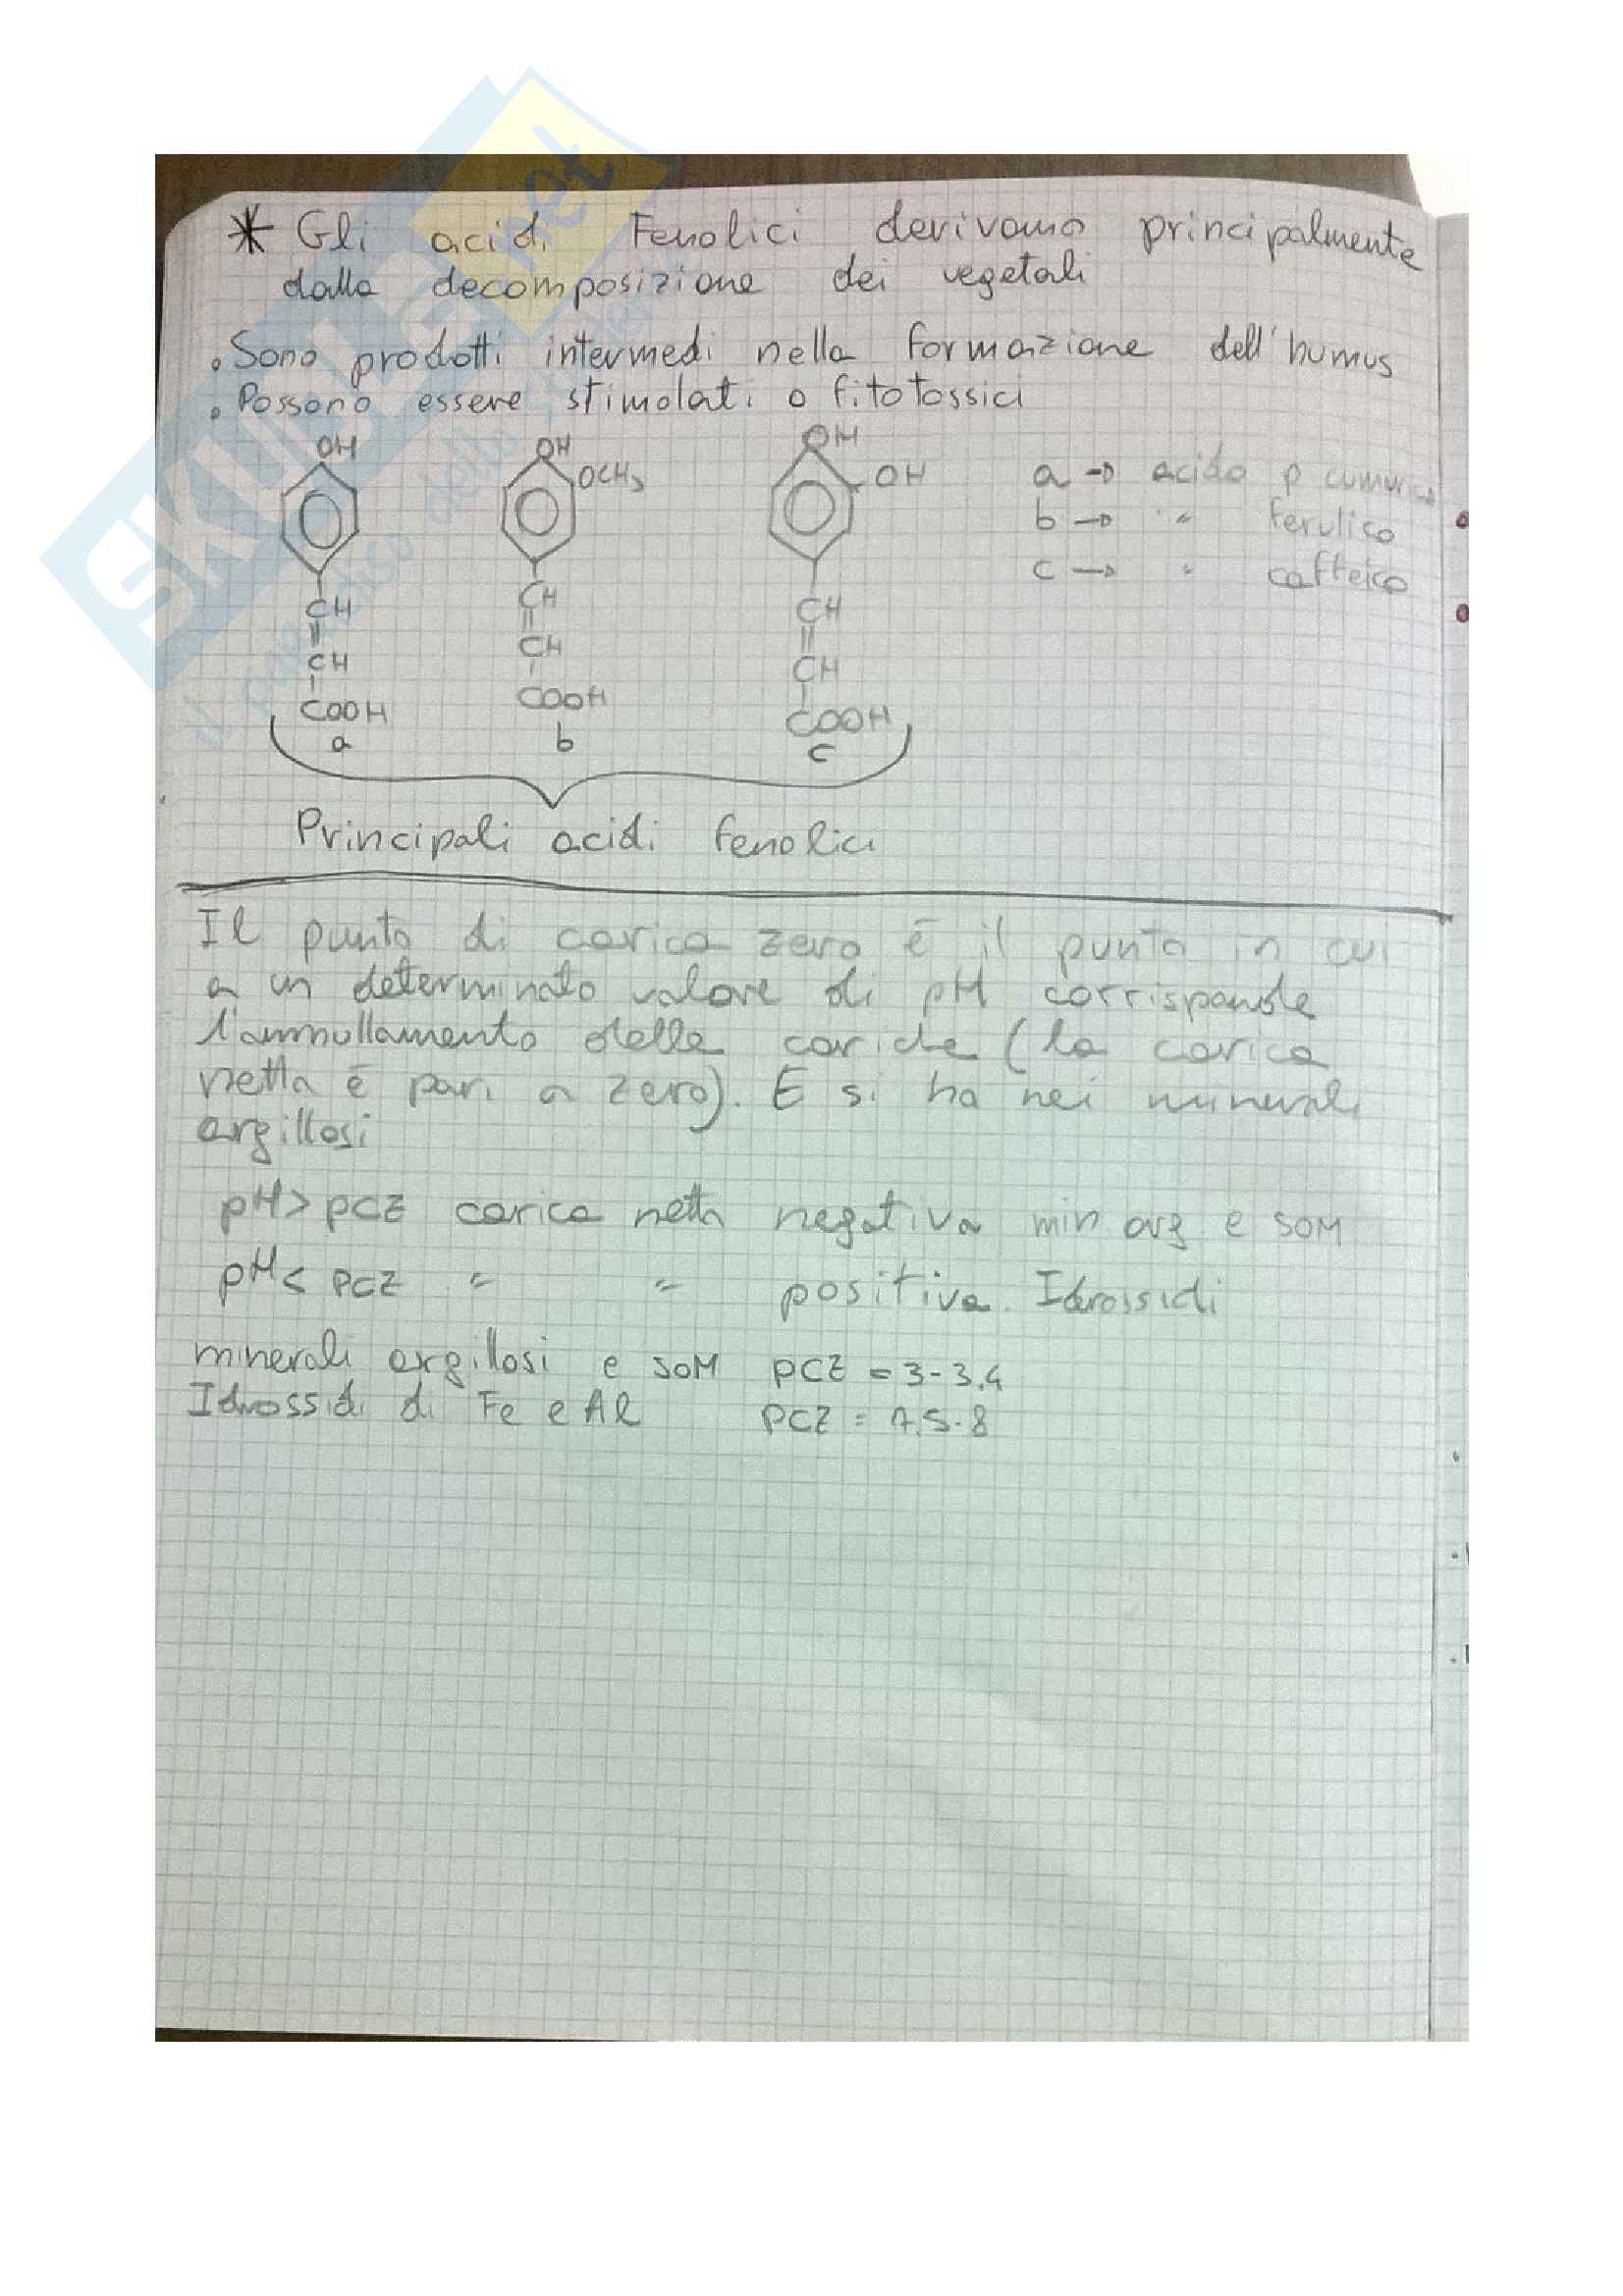 * Gli acidi Fenolici derivano principalmente
dalla decomposizione dei vegetali
• Sono prodotti intermedi nella formazione dell'humus
• Possono essere stimolati o fitotossici
OH OH OH
OCH3 OH
a → acido p cumarico
b → " ferulico
c → " caffeico
CH CH CH
CH CH CH
COOH COOH COOH
a b c
Principali acidi fenolici
Il punto di carica zero è il punto in cui
a un determinato valore di pH corrisponde
l'annullamento delle cariche (la carica
netta è pari a zero). E si ha nei minerali
argillosi
pH > PCZ carica netta negativa min arg e SOM
pH < PCZ " " positiva. Idrossidi
minerali argillosi e SOM PCZ = 3-3.4
Idrossidi di Fe e Al PCZ = 7.5-8
SKUOLA.net
il paradiso dello studente